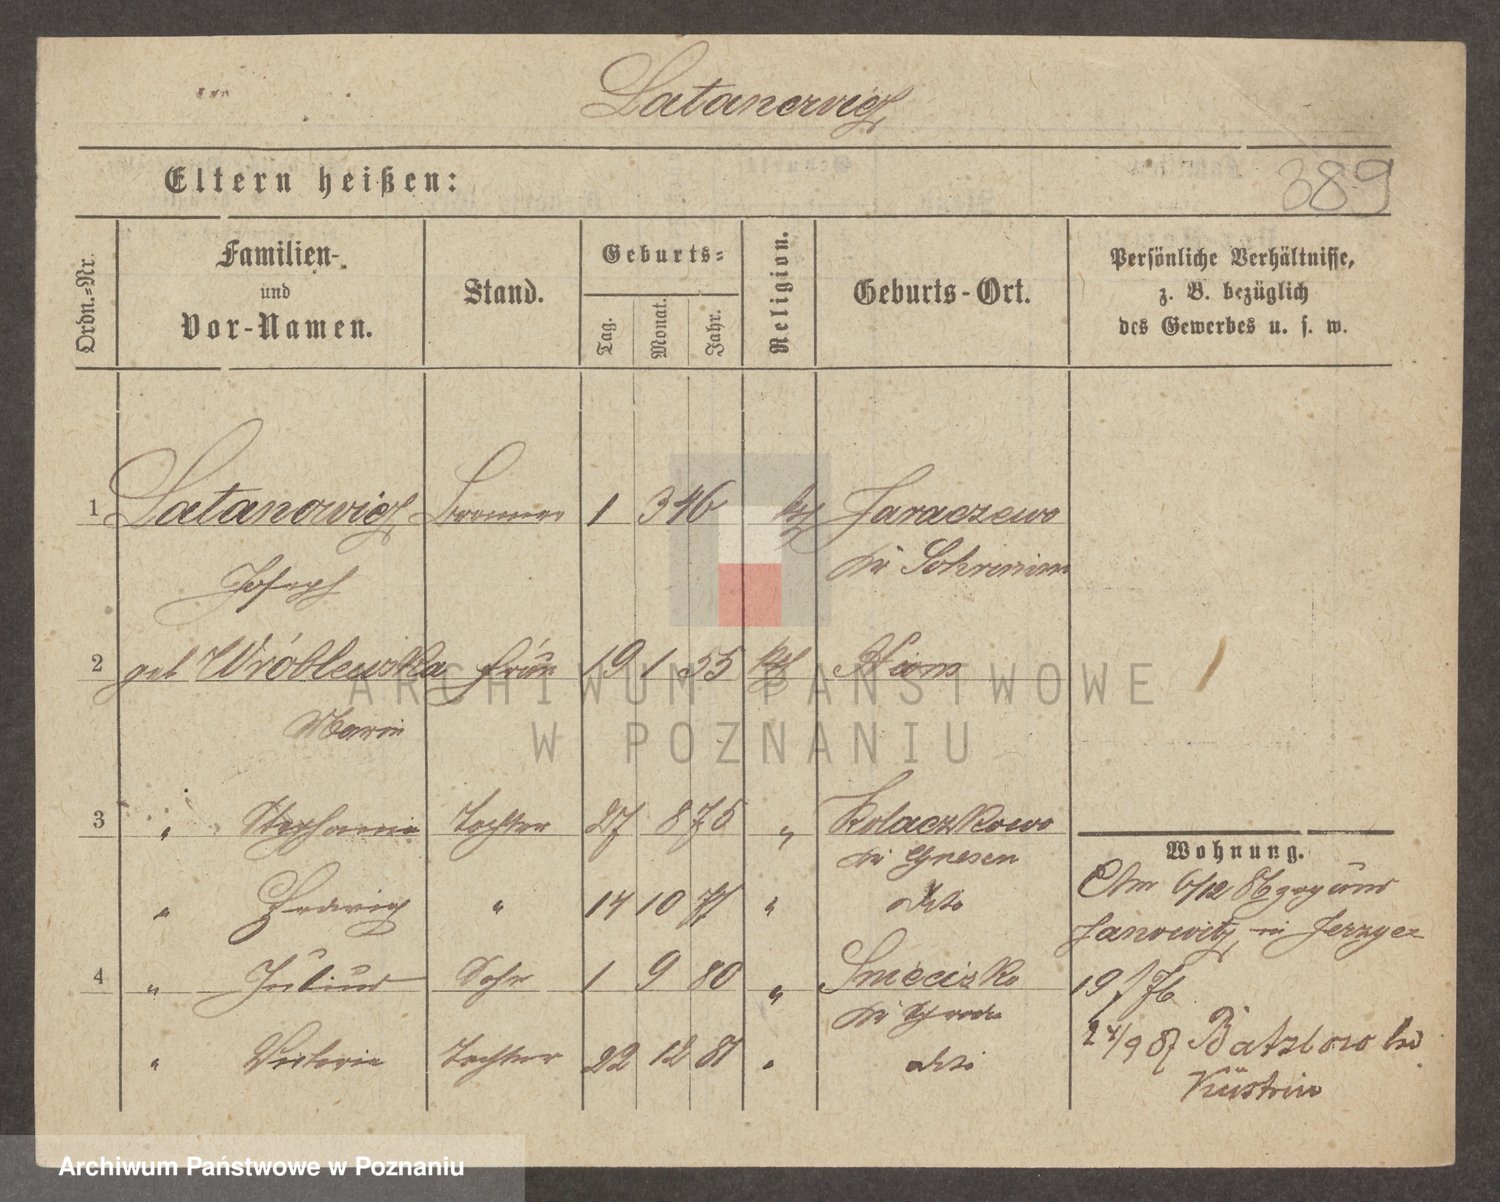 Latanowicz
Eltern heißen:
389
Ordn.-Nr.
Familien-
und
Vor-Namen.
Stand.
Geburts-
Tag.
Monat.
Jahr.
Religion.
Geburts-Ort.
Persönliche Verhältnisse,
z. B. bezüglich
des Gewerbes u. s. w.
1 Latanowicz Brenner 1 3 46 kth Jaraczewo
Joseph Kr
2 geb Wróblewska Frau 19 1 55 kth
Marie
3 " Stephanie Tochter 27 8 75 " Kolaczkowo
Kr Gnesen
" Hedwig " 14 10 77 " dto
4 " Julius Sohn 1 9 80 "
Kr Schroda
" Victoria Tochter 22 12 81 " dto
Wohnung.
Am 6/12 86
Janowitz in Jerzyce
19
24/9 87 bei
Küstrin
ARCHIWUM PAŃSTWOWE
W POZNANIU
Archiwum Państwowe w Poznaniu